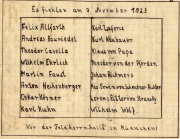 Es fielen am 9. November 1923
Felix Allfarth
Andreas Bauriedel
Theodor Casella
Wilhelm Ehrlich
Martin Faust
Anton Hechenberger
Oskar Körner
Karl Kuhn
Karl Laforce
Kurt Neubauer
Klaus von Pape
Theodor von der Pfordten
Johann Rickmers
Max Erwin von Scheubner Richter
Lorenz Ritter von Stransky
Wilhelm Wolf
Vor der Feldherrnhalle in München!